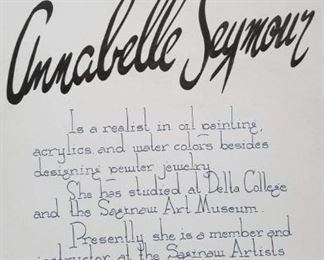 Annabelle Seymour
Is a realist in oil painting,
acrylics, and water colors besides
designing pewter jewelry.
She has studied at Delta College
and the Saginaw Art Museum.
Presently she is a member and
instructor at the Saginaw Artists